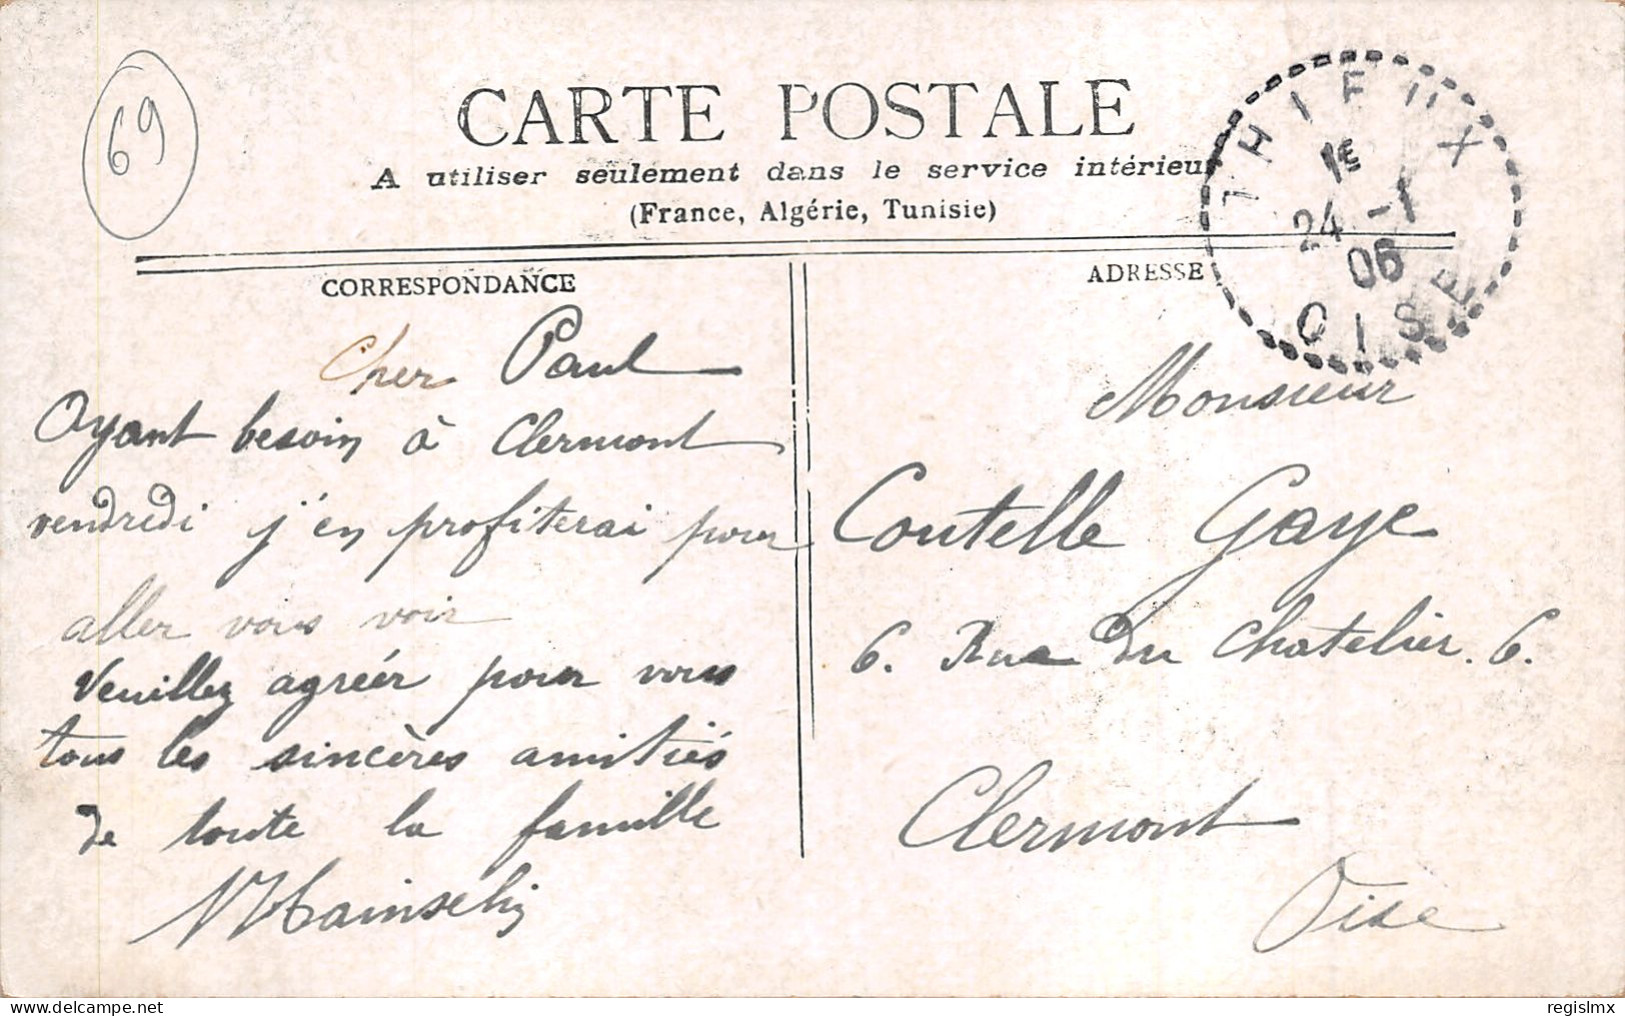 69
CARTE POSTALE
A utiliser seulement dans le service intérieur
(France, Algérie, Tunisie)
THIEUX
1E
24 -1
06
OISE
CORRESPONDANCE
Cher Paul
Ayant besoin à Clermont
vendredi j'en profiterai pour
aller vous voir
Veuillez agréer pour vous
tous les sincères amitiés
de toute la famille
ADRESSE
Monsieur
Coutelle Gaye
6. Rue du Chatelier. 6.
Clermont
Oise
delcampe.net
regislmx